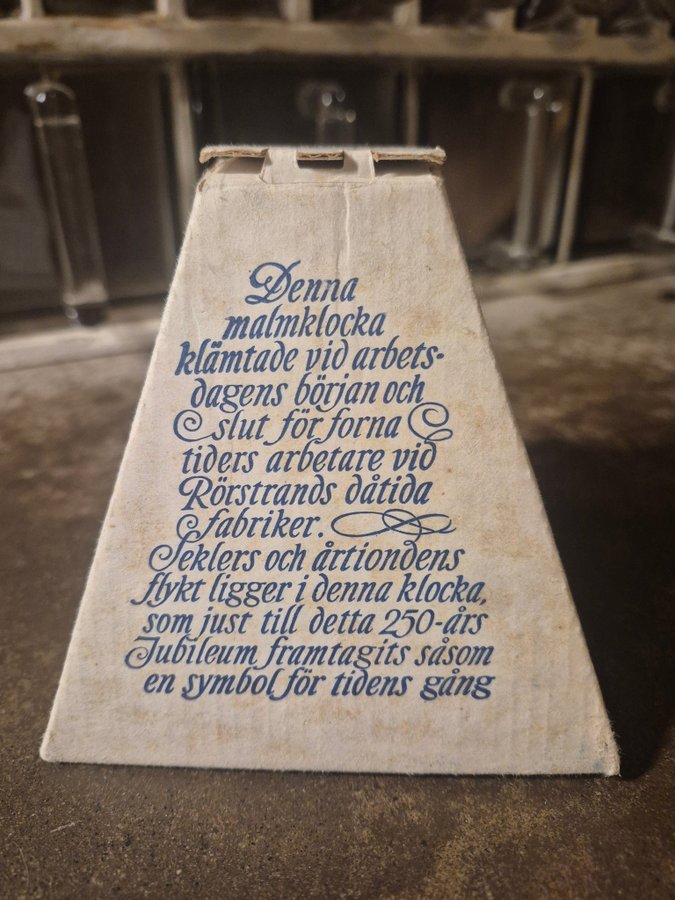 Denna
malmklocka
klämtade vid arbets-
dagens början och
slut för forna
tiders arbetare vid
Rörstrands dåtida
fabriker.
Seklers och årtiondens
flykt ligger i denna klocka,
som just till detta 250-års
Jubileum framtagits såsom
en symbol för tidens gång